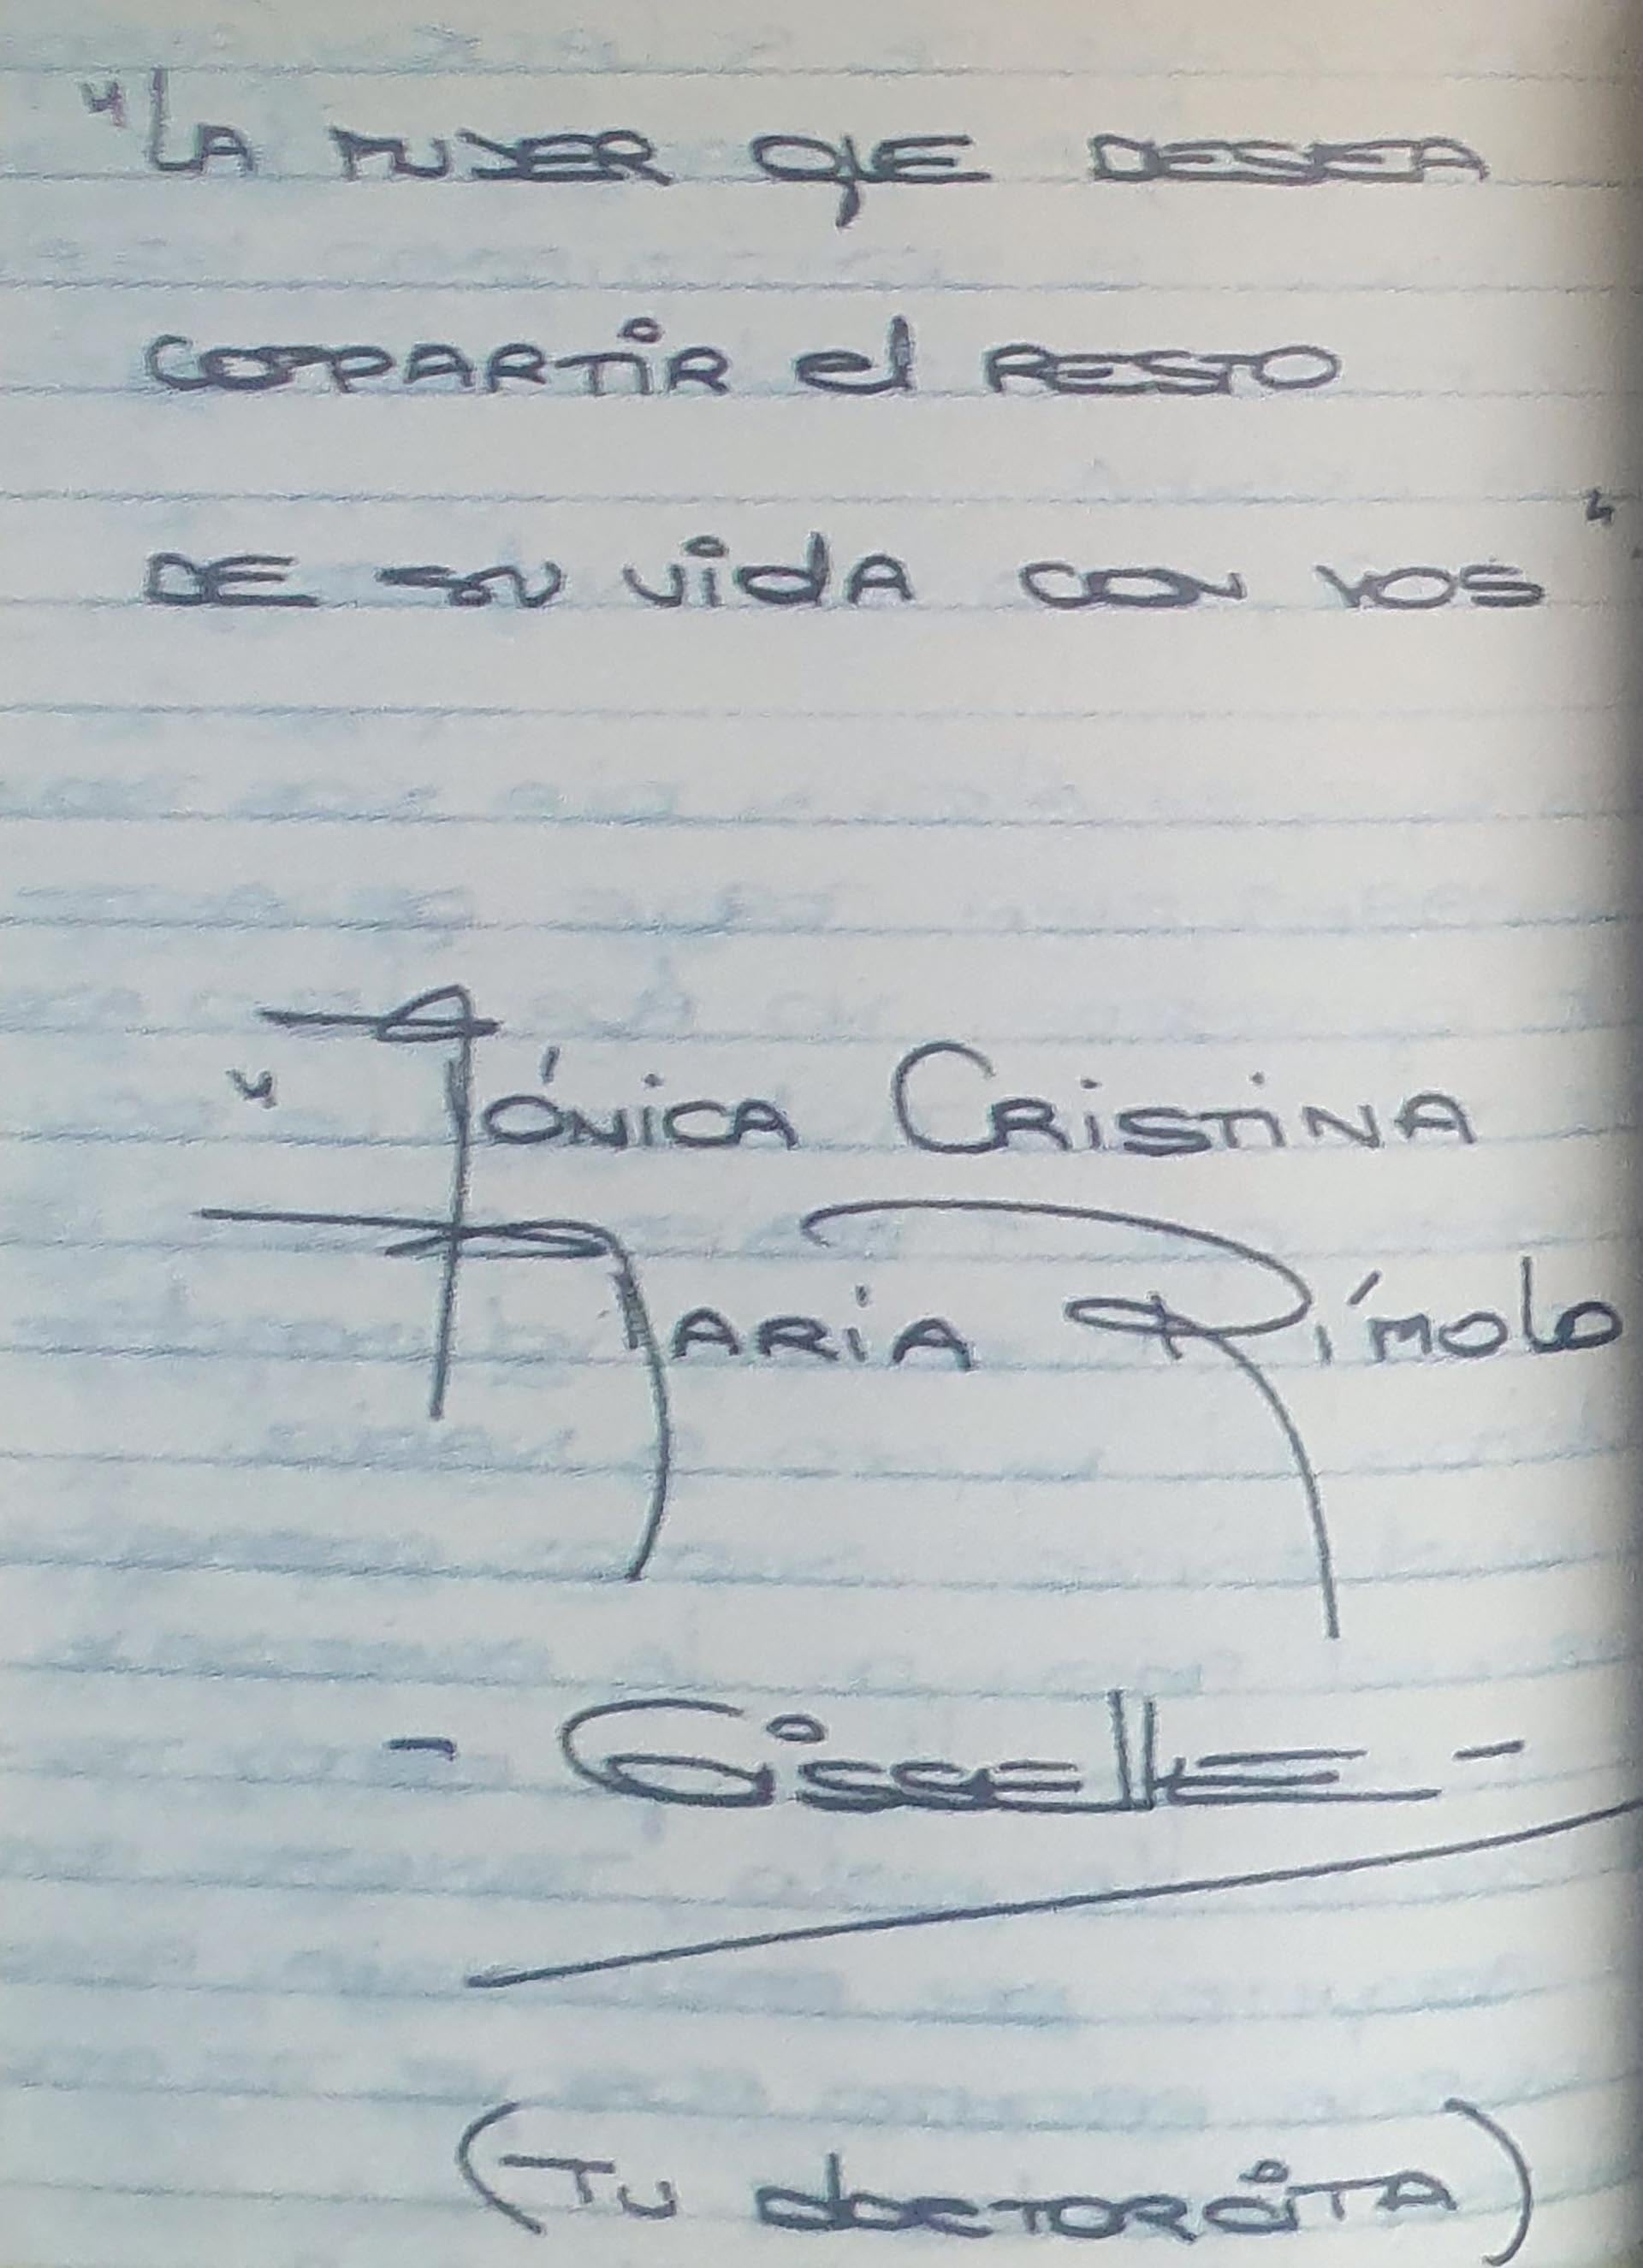 "LA MUJER QUE DESEA
COMPARTIR el RESTO
DE SU VidA CON VOS".
"MÓNICA CRISTINA
MARIA RÍMOLO
- GissEllE -
(TU doCTORCITA)